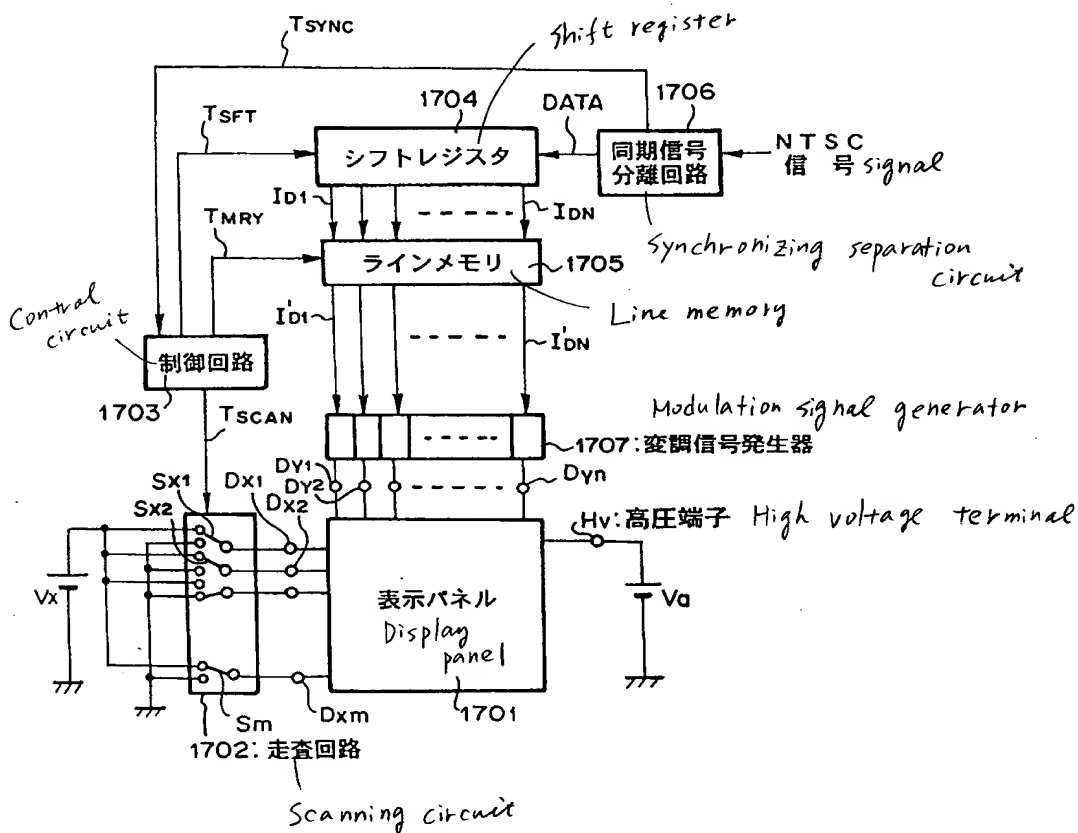 TSYNC
Shift register
1704
DATA
1706
TSFT
シフトレジスタ
同期信号
分離回路
NTSC
信号 signal
ID1
IDN
TMRY
Synchronizing separation
circuit
ラインメモリ
1705
Line memory
Control
circuit
I'D1
I'DN
制御回路
1703
TSCAN
Modulation signal generator
1707:変調信号発生器
DY1
DY2
Dyn
SX1
SX2
DX1
DX2
Hv:高圧端子 High voltage terminal
Vx
表示パネル
Display
panel
Va
Sm
Dxm
1701
1702:走査回路
Scanning circuit